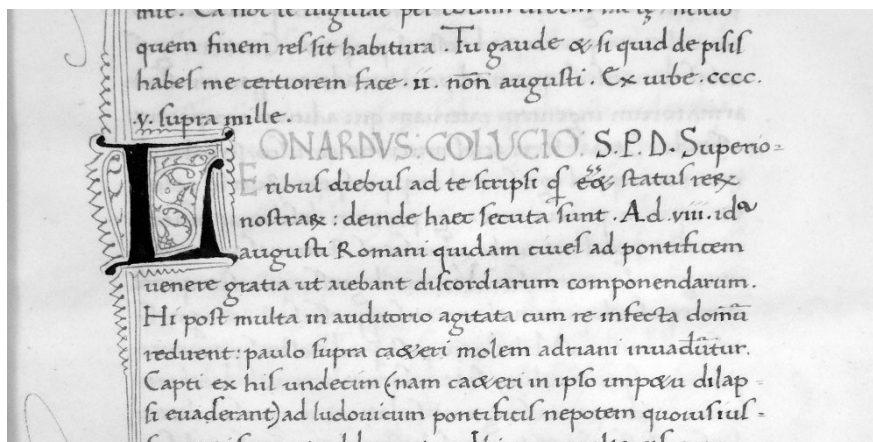 quem finem res sit habitura. Tu gaude & si quid de pisis
habes me certiorem face. II. nōn augusti. Ex urbe. cccc.
v. supra mille.
LEONARDVS: COLUCIO: S.P.D. Superio-
ribus diebus ad te scripsi qͥ eēt status reꝝ
nostraꝝ: deinde haec secuta sunt. A.d. viii. id
augusti Romani quidam ciues ad pontificem
uenere gratia ut aiebant discordiarum componendarum.
Hi post multa in auditorio agitata cum re infecta domū
redirent: paulo supra ca&eri molem adriani inuadūtur.
Capti ex his undecim (nam ca&eri in ipso imp&u dilap-
si euaserant) ad ludouicum pontificis nepotem quouis ius-